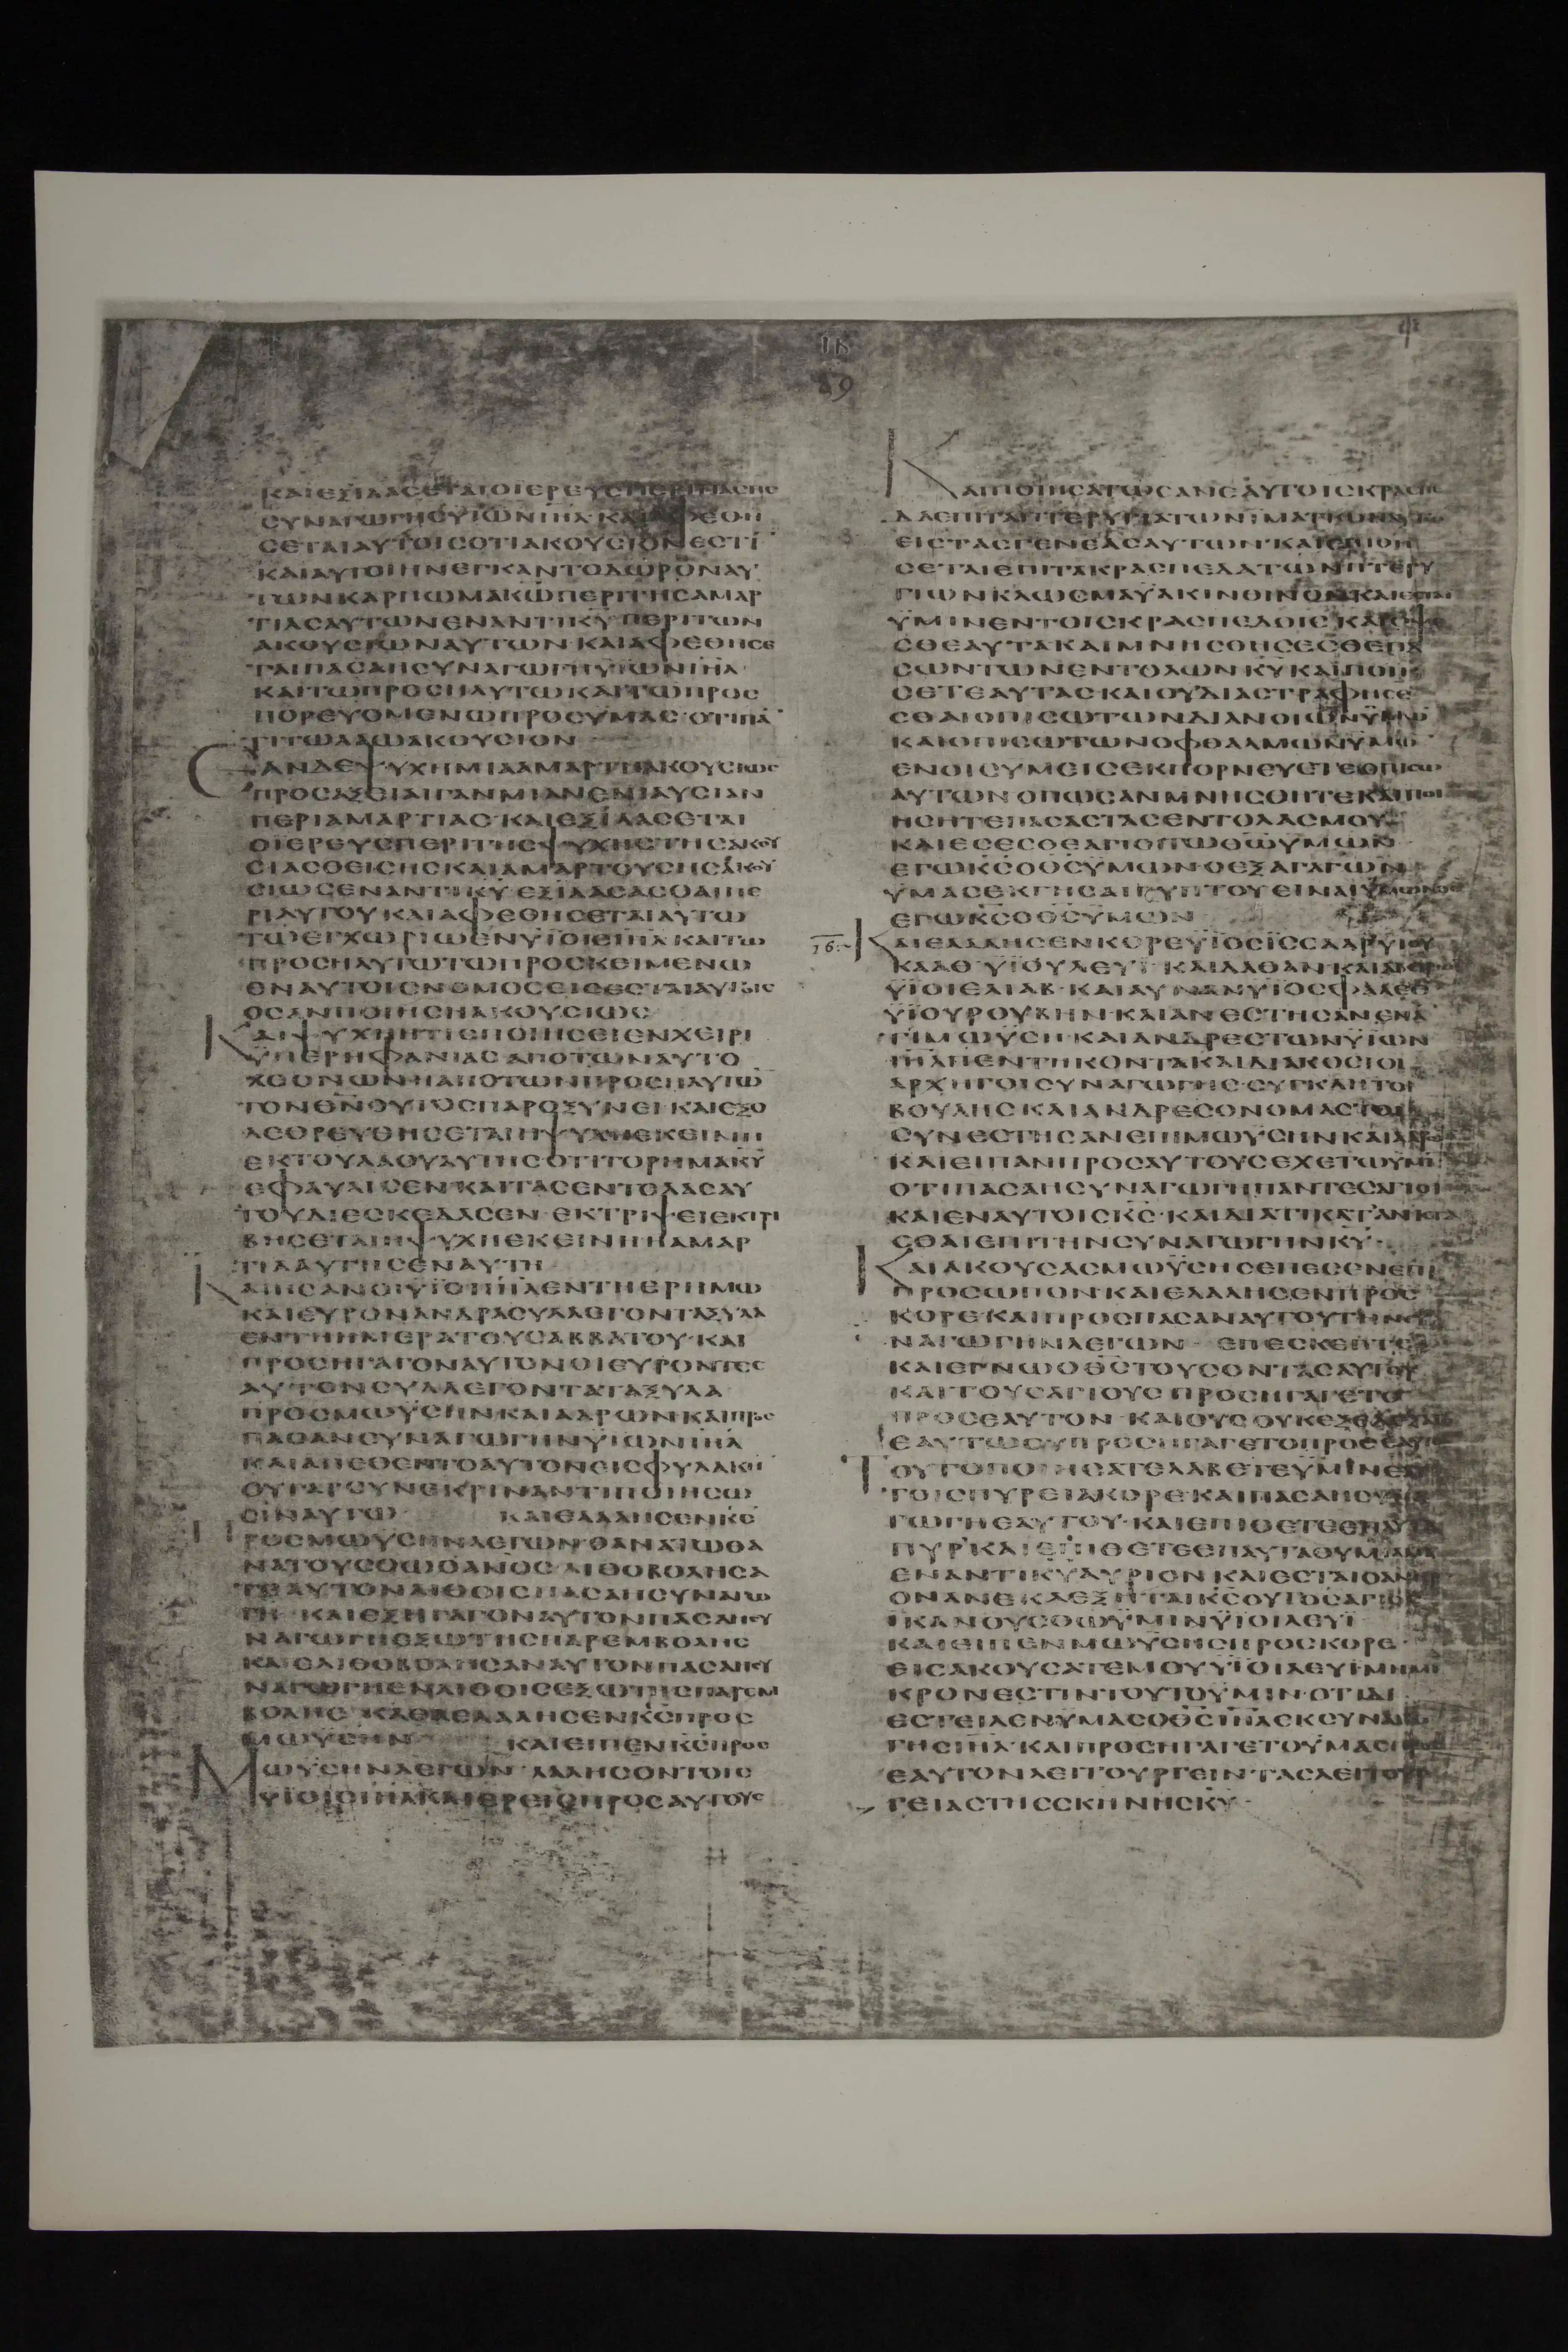 89
ΚΑΙΕΞΙΛΑΣΕΤΑΙΟΙΕΡΕΥΣΠΕΡΙΠΑΣΗΣ
ΣΥΝΑΓΩΓΗΣΥΪΩΝΙΗΛ·ΚΑΙΑΦΕΘΗ
ΣΕΤΑΙΑΥΤΟΙΣΟΤΙΑΚΟΥΣΙΟΝΕΣΤΙ
ΚΑΙΑΥΤΟΙΗΝΕΓΚΑΝΤΟΔΩΡΟΝΑΥ
ΤΩΝΚΑΡΠΩΜΑΚΩΠΕΡΙΤΗΣΑΜΑΡ
ΤΙΑΣΑΥΤΩΝΕΝΑΝΤΙΚΥΠΕΡΙΤΩΝ
ΑΚΟΥΣΙΩΝΑΥΤΩΝ·ΚΑΙΑΦΕΘΗΣΕ
ΤΑΙΠΑΣΑΗΣΥΝΑΓΩΓΗΥΪΩΝΙΗΛ·
ΚΑΙΤΩΠΡΟΣΗΛΥΤΩΚΑΙΤΩΠΡΟΣ
ΠΟΡΕΥΟΜΕΝΩΠΡΟΣΥΜΑΣ·ΟΤΙΠΑ
ΤΙΤΩΛΑΩΑΚΟΥΣΙΟΝ
ΕΑΝΔΕΨΥΧΗΜΙΑΑΜΑΡΤΗΑΚΟΥΣΙΩΣ
ΠΡΟΣΑΞΕΙΑΙΓΑΝΜΙΑΝΕΝΙΑΥΣΙΑΝ
ΠΕΡΙΑΜΑΡΤΙΑΣ·ΚΑΙΕΞΙΛΑΣΕΤΑΙ
ΟΙΕΡΕΥΣΠΕΡΙΤΗΣΨΥΧΗΣΤΗΣΑΚΟΥ
ΣΙΑΣΘΕΙΣΗΣΚΑΙΑΜΑΡΤΟΥΣΗΣΑΚΟΥ
ΣΙΩΣΕΝΑΝΤΙΚΥ·ΕΞΙΛΑΣΑΣΘΑΙΠΕ
ΡΙΑΥΤΟΥΚΑΙΑΦΕΘΗΣΕΤΑΙΑΥΤΩ
ΤΩΕΓΧΩΡΙΩΕΝΥΪΟΙΣΙΗΛ·ΚΑΙΤΩ
ΠΡΟΣΗΛΥΤΩΤΩΠΡΟΣΚΕΙΜΕΝΩ
ΕΝΑΥΤΟΙΣΝΟΜΟΣΕΙΣΕΣΤΑΙΑΥΤΟΙΣ
ΟΣΑΝΠΟΙΗΣΗΑΚΟΥΣΙΩΣ
ΚΑΙΨΥΧΗΗΤΙΣΠΟΙΗΣΕΙΕΝΧΕΙΡΙ
ΫΠΕΡΗΦΑΝΙΑΣΑΠΟΤΩΝΑΥΤΟ
ΧΘΟΝΩΝΗΑΠΟΤΩΝΠΡΟΣΗΛΥΤΩ
ΤΟΝΘΝΟΥΤΟΣΠΑΡΟΞΥΝΕΙ·ΚΑΙΕΞΟ
ΛΕΘΡΕΥΘΗΣΕΤΑΙΗΨΥΧΗΕΚΕΙΝΗ
ΕΚΤΟΥΛΑΟΥΑΥΤΗΣ·ΟΤΙΤΟΡΗΜΑΚΥ
ΕΦΑΥΛΙΣΕΝ·ΚΑΙΤΑΣΕΝΤΟΛΑΣΑΥ
ΤΟΥΔΙΕΣΚΕΔΑΣΕΝ·ΕΚΤΡΙΨΕΙΕΚΤΡΙ
ΒΗΣΕΤΑΙΗΨΥΧΗΕΚΕΙΝΗΗΑΜΑΡ
ΤΙΑΑΥΤΗΣΕΝΑΥΤΗ
ΚΑΙΗΣΑΝΟΙΫΪΟΙΙΗΛΕΝΤΗΕΡΗΜΩ
ΚΑΙΕΥΡΟΝΑΝΔΡΑΣΥΛΛΕΓΟΝΤΑΞΥΛΑ
ΕΝΤΗΗΜΕΡΑΤΟΥΣΑΒΒΑΤΟΥ·ΚΑΙ
ΠΡΟΣΗΓΑΓΟΝΑΥΤΟΝΟΙΕΥΡΟΝΤΕΣ
ΑΥΤΟΝΣΥΛΛΕΓΟΝΤΑΤΑΞΥΛΑ
ΠΡΟΣΜΩΥΣΗΝΚΑΙΑΑΡΩΝΚΑΙΠΡΟΣ
ΠΑΣΑΝΣΥΝΑΓΩΓΗΝΥΪΩΝΙΗΛ
ΚΑΙΑΠΕΘΕΝΤΟΑΥΤΟΝΕΙΣΦΥΛΑΚΗ
ΟΥΓΑΡΣΥΝΕΚΡΙΝΑΝΤΙΠΟΙΗΣΩ
ΣΙΝΑΥΤΩ ΚΑΙΕΛΑΛΗΣΕΝΚΣ
ΠΡΟΣΜΩΥΣΗΝΛΕΓΩΝ·ΘΑΝΑΤΩΘΑ
ΝΑΤΟΥΣΘΩΟΑΝΟΣ·ΛΙΘΟΒΟΛΗΣΑ
ΤΕΑΥΤΟΝΛΙΘΟΙΣΠΑΣΑΗΣΥΝΑΓΩ
ΓΗ· ΚΑΙΕΞΗΓΑΓΟΝΑΥΤΟΝΠΑΣΑΗΣΥ
ΝΑΓΩΓΗΕΞΩΤΗΣΠΑΡΕΜΒΟΛΗΣ
ΚΑΙΕΛΙΘΟΒΟΛΗΣΑΝΑΥΤΟΝΠΑΣΑΗΣΥ
ΝΑΓΩΓΗΕΝΛΙΘΟΙΣΕΞΩΤΗΣΠΑΡΕΜ
ΒΟΛΗΣ· ΚΑΘΑΕΛΑΛΗΣΕΝΚΣΠΡΟΣ
ΜΩΥΣΗΝ ΚΑΙΕΙΠΕΝΚΣΠΡΟΣ
ΜΩΥΣΗΝΛΕΓΩΝ·ΛΑΛΗΣΟΝΤΟΙΣ
ΥΪΟΙΣΙΗΛΚΑΙΕΡΕΙΣΠΡΟΣΑΥΤΟΥΣ
ΚΑΙΠΟΙΗΣΑΤΩΣΑΝΕΑΥΤΟΙΣΚΡΑΣΠΕ
ΔΑΕΠΙΤΑΠΤΕΡΥΓΙΑΤΩΝΙΜΑΤΙΩΝΑΥΤΩ
ΕΙΣΤΑΣΓΕΝΕΑΣΑΥΤΩΝ·ΚΑΙΕΠΙΘΗ
ΣΕΤΑΙΕΠΙΤΑΚΡΑΣΠΕΔΑΤΩΝΠΤΕΡΥ
ΓΙΩΝΚΛΩΣΜΑΫΑΚΙΝΘΙΝΟΝ·ΚΑΙΕΣΤΑΙ
ΫΜΙΝΕΝΤΟΙΣΚΡΑΣΠΕΔΟΙΣ·ΚΑΙΟΨΕ
ΣΘΕΑΥΤΑΚΑΙΜΝΗΣΘΗΣΕΣΘΕΠΑ
ΣΩΝΤΩΝΕΝΤΟΛΩΝΚΥΚΑΙΠΟΙΗ
ΣΕΤΕΑΥΤΑΣ·ΚΑΙΟΥΔΙΑΣΤΡΑΦΗΣΕ
ΣΘΑΙΟΠΙΣΩΤΩΝΔΙΑΝΟΙΩΝΫΜΩ
ΚΑΙΟΠΙΣΩΤΩΝΟΦΘΑΛΜΩΝΥΜΩ
ΕΝΟΙΣΥΜΕΙΣΕΚΠΟΡΝΕΥΕΤΕΟΠΙΣΩ
ΑΥΤΩΝΟΠΩΣΑΝΜΝΗΣΘΗΤΕΚΑΙΠΟΙ
ΗΣΗΤΕΠΑΣΑΣΤΑΣΕΝΤΟΛΑΣΜΟΥ
ΚΑΙΕΣΕΣΘΕΑΓΙΟΙΤΩΘΩΥΜΩΝ
ΕΓΩΚΣΟΘΣΥΜΩΝ·ΟΕΞΑΓΑΓΩΝ
ΫΜΑΣΕΚΓΗΣΑΙΓΥΠΤΟΥΕΙΝΑΙΥΜΩΝΘΣ
ΕΓΩΚΣΟΘΣΫΜΩΝ
16
ΚΑΙΕΛΑΛΗΣΕΝΚΟΡΕΥΪΟΣΪΣΣΑΑΡΥΙΟΥ
ΚΑΑΘ·ΥΪΟΥΛΕΥΙ·ΚΑΙΔΑΘΑΝΚΑΙΑΒΕΙΡΩ
ΥΪΟΙΕΛΙΑΒ·ΚΑΙΑΥΝΑΝΥΪΟΣΦΑΛΕΘ
ΥΪΟΥΡΟΥΒΗΝ·ΚΑΙΑΝΕΣΤΗΣΑΝΕΝΑ
ΤΙΜΩΥΣΗ·ΚΑΙΑΝΔΡΕΣΤΩΝΥΪΩΝ
ΙΗΛΠΕΝΤΗΚΟΝΤΑΚΑΙΔΙΑΚΟΣΙΟΙ
ΑΡΧΗΓΟΙΣΥΝΑΓΩΓΗΣ·ΣΥΓΚΛΗΤΟΙ
ΒΟΥΛΗΣΚΑΙΑΝΔΡΕΣΟΝΟΜΑΣΤΟΙ
ΣΥΝΕΣΤΗΣΑΝΕΠΙΜΩΥΣΗΝΚΑΙΑΑΡΩ
ΚΑΙΕΙΠΑΝΠΡΟΣΑΥΤΟΥΣΕΧΕΤΩΥΜΙ
ΟΤΙΠΑΣΑΗΣΥΝΑΓΩΓΗΠΑΝΤΕΣΑΓΙΟΙ
ΚΑΙΕΝΑΥΤΟΙΣΚΣ·ΚΑΙΔΙΑΤΙΚΑΤΑΝΙΣΤΑ
ΣΘΑΙΕΠΙΤΗΝΣΥΝΑΓΩΓΗΝΚΥ·
ΚΑΙΑΚΟΥΣΑΣΜΩΫΣΗΣΕΠΕΣΕΝΕΠΙ
ΠΡΟΣΩΠΟΝ·ΚΑΙΕΛΑΛΗΣΕΝΠΡΟΣ
ΚΟΡΕ·ΚΑΙΠΡΟΣΠΑΣΑΝΑΥΤΟΥΤΗΝΣΥ
ΝΑΓΩΓΗΝΛΕΓΩΝ· ΕΠΕΣΚΕΠΤΑΙ
ΚΑΙΕΓΝΩΟΘΣΤΟΥΣΟΝΤΑΣΑΥΤΟΥ
ΚΑΙΤΟΥΣΑΓΙΟΥΣΠΡΟΣΗΓΑΓΕΤΟ
ΠΡΟΣΕΑΥΤΟΝ·ΚΑΙΟΥΣΟΥΚΕΞΕΛΕΞΑΤΟ
ΕΑΥΤΩΟΥΠΡΟΣΗΓΑΓΕΤΟΠΡΟΣΕΑΥΤΟ
ΤΟΥΤΟΠΟΙΗΣΑΤΕΛΑΒΕΤΕΥΜΙΝΕΑΥ
ΤΟΙΣΠΥΡΕΙΑΚΟΡΕ·ΚΑΙΠΑΣΑΗΣΥΝΑ
ΓΩΓΗΕΑΥΤΟΥ·ΚΑΙΕΠΙΘΕΤΕΕΠΑΥΤΑ
ΠΥΡ·ΚΑΙΕΠΙΘΕΤΕΕΠΑΥΤΑΘΥΜΙΑΜΑ
ΕΝΑΝΤΙΚΥΑΥΡΙΟΝ·ΚΑΙΕΣΤΑΙΟΑΝΗΡ
ΟΝΑΝΕΚΛΕΞΗΤΑΙΚΣΟΥΤΟΣΑΓΙΟΣ
ΙΚΑΝΟΥΣΘΩΥΜΙΝΥΪΟΙΛΕΥΙ
ΚΑΙΕΙΠΕΝΜΩΥΣΗΣΠΡΟΣΚΟΡΕ·
ΕΙΣΑΚΟΥΣΑΤΕΜΟΥΥΪΟΙΛΕΥΙ·ΜΗΜΙ
ΚΡΟΝΕΣΤΙΝΤΟΥΤΟΥΜΙΝ·ΟΤΙΔΙ
ΕΣΤΕΙΛΕΝΥΜΑΣΟΘΣΙΗΛΕΚΣΥΝΑΓΩ
ΓΗΣΙΗΛ·ΚΑΙΠΡΟΣΗΓΑΓΕΤΟΥΜΑΣΠΡΟΣ
ΕΑΥΤΟΝΛΕΙΤΟΥΡΓΕΙΝ·ΤΑΣΛΕΙΤΟΥΡ
ΓΕΙΑΣΤΗΣΣΚΗΝΗΣΚΥ·